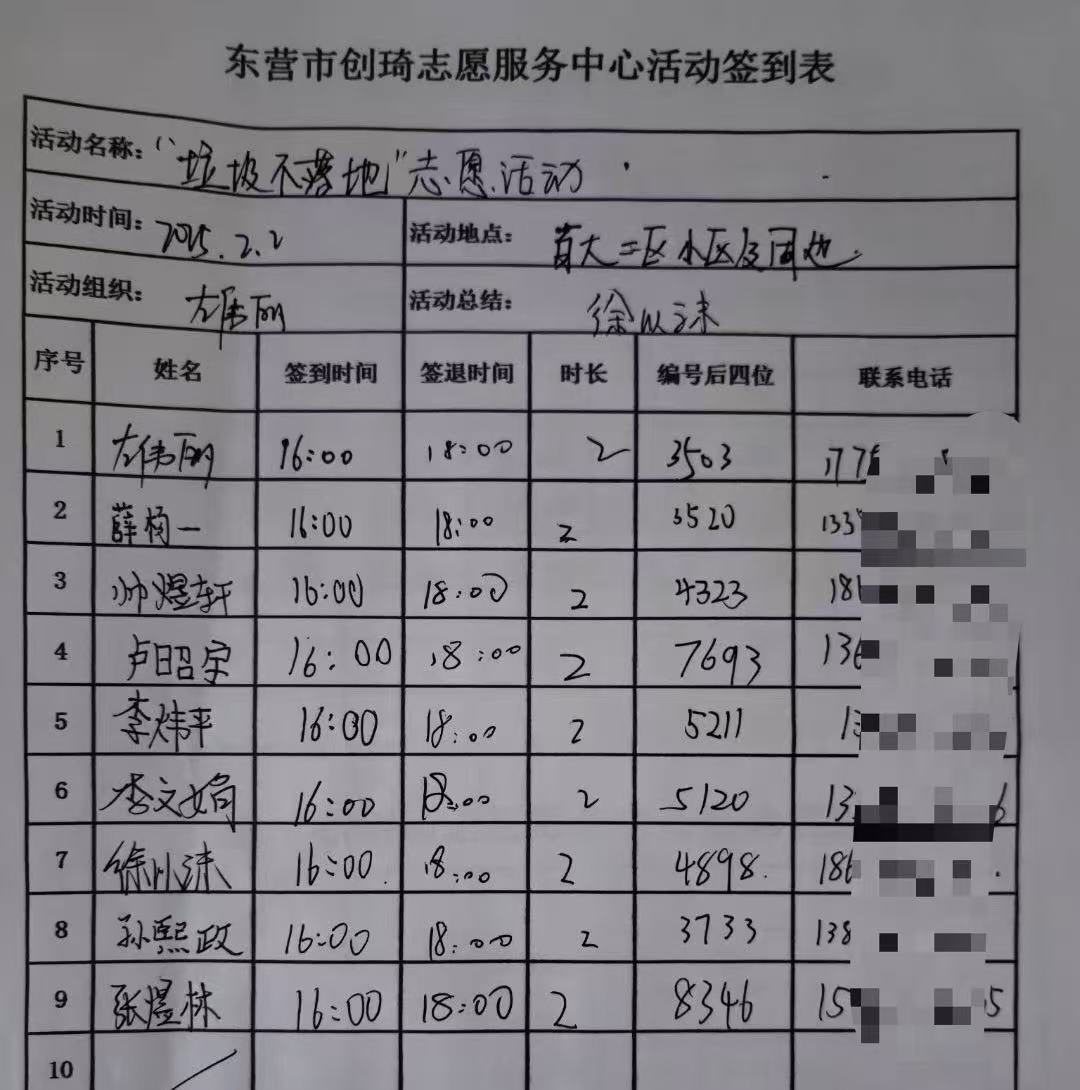 东营市创琦志愿服务中心活动签到表
活动名称："垃圾不落地"志愿活动
活动时间：2025.2.2 活动地点：首大二区小区及周边.
活动组织：左伟丽 活动总结：徐以沫
序号 姓名 签到时间 签退时间 时长 编号后四位 联系电话
1 左伟丽 16:00 18:00 2 3503 177
2 薛杨一 16:00 18:00 2 3520 133
3 帅煜轩 16:00 18:00 2 4323 186
4 卢昭宇 16:00 18:00 2 7693 136
5 李炜平 16:00 18:00 2 5211 13
6 李文娟 16:00 18:00 2 5120 13 6
7 徐以沫 16:00 18:00 2 4898 186
8 孙熙政 16:00 18:00 2 3733 138
9 张煜林 16:00 18:00 2 8346 15 5
10